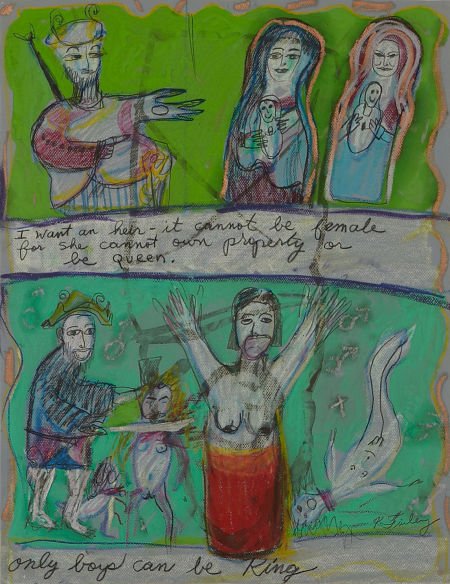 I want an heir - it cannot be female
for she cannot own property or
be queen.
only boys can be King